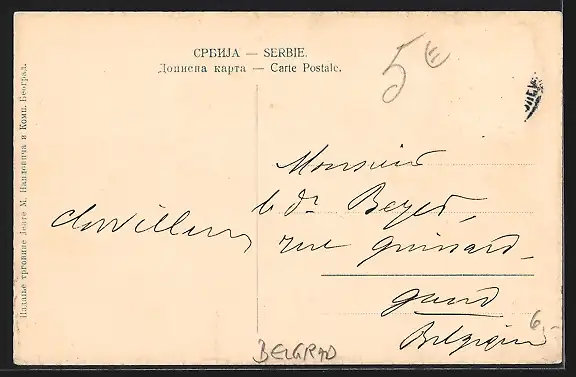 СРБИЈА — SERBIE.
Дописна карта — Carte Postale.
5 €
Monsieur
le dr Beyer,
rue guinard.
gand
Belgique
6,-
BELGRAD
Издање трговине Јевте М. Павловића и Комп. Београд.